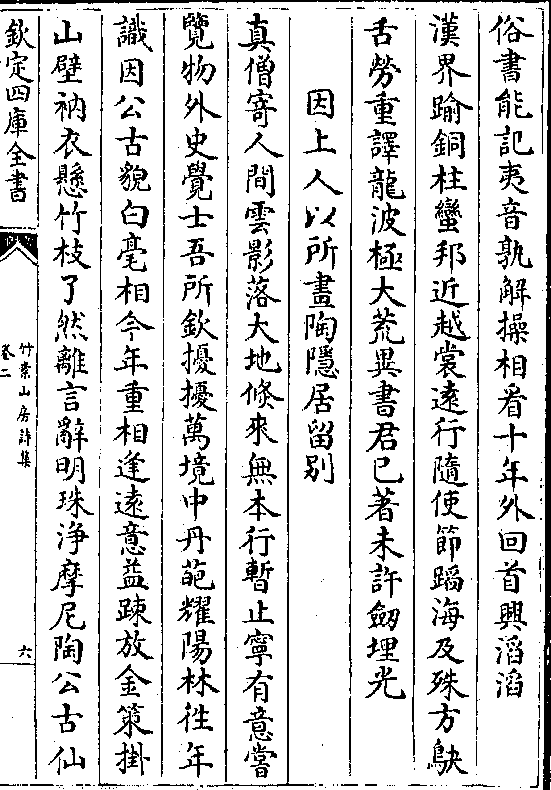 俗書能記夷音孰解操相看十年外回首興滔滔
漢界踰銅柱蠻邦近越裳遠行隨使節蹈海及殊方鴃
舌勞重譯龍波極大荒異書君已著未許劒埋光
因上人以所畫陶隱居留别
真僧寄人間雲影落大地倏來無本行暫止寧有意嘗
覽物外史覺士吾所欽擾擾萬境中丹葩耀陽林徃年
識因公古貌白毫相今年重相逢遠意益踈放金策掛
山壁衲衣懸竹枝了然離言辭明珠浄摩尼陶公古仙
欽定四庫全書
竹素山房詩集
卷二
六